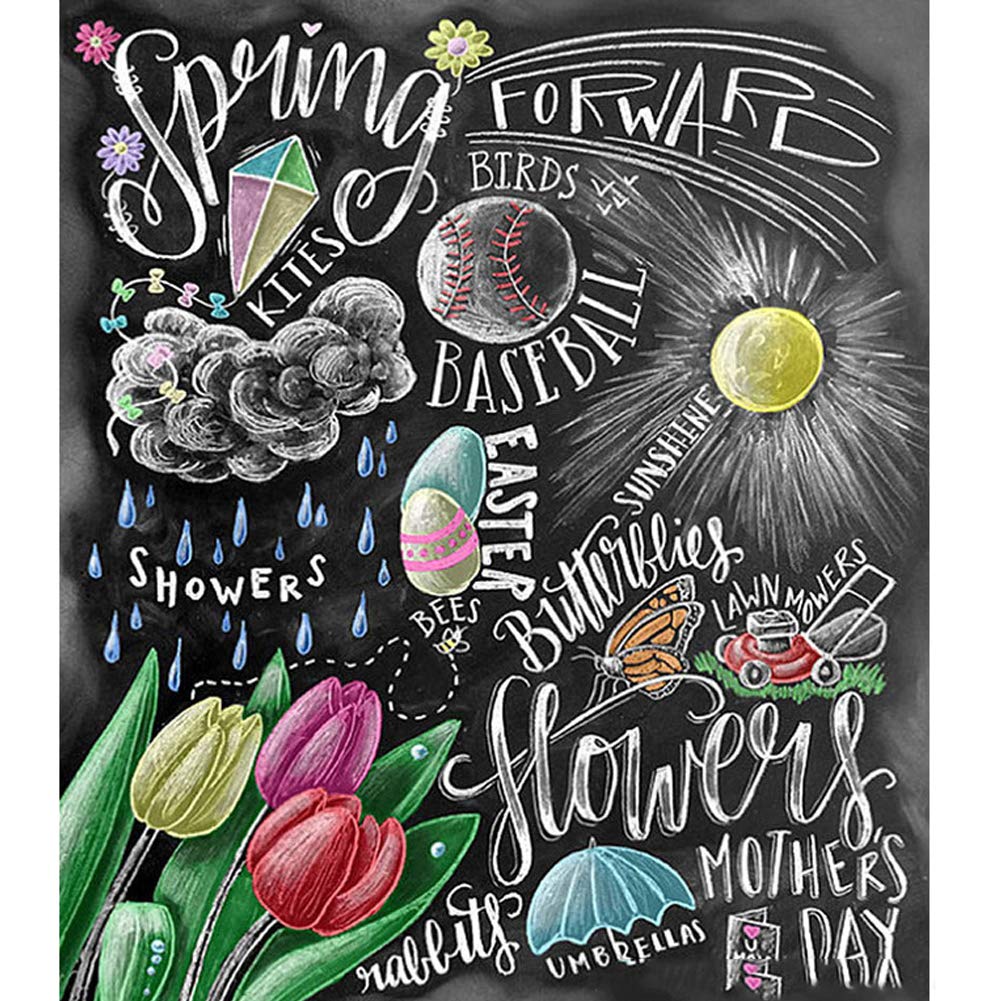 Spring
FORWARD
BIRDS
KITES
BASEBALL
SUNSHINE
EASTER
SHOWERS
BEES
Butterflies
LAWN MOWERS
flowers
MOTHER'S
DAY
rabbits
UMBRELLAS